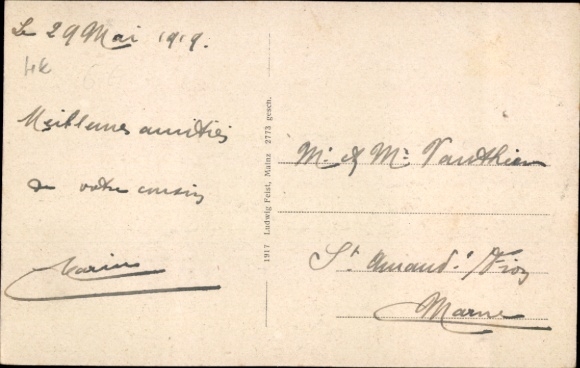 Le 29 Mai 1919.
Meilleures amitiés
de votre cousin
Marius
1917 Ludwig Feist, Mainz 2773 gesch.
Mr & Me Vauthier
St Amand s/ Fion
Marne